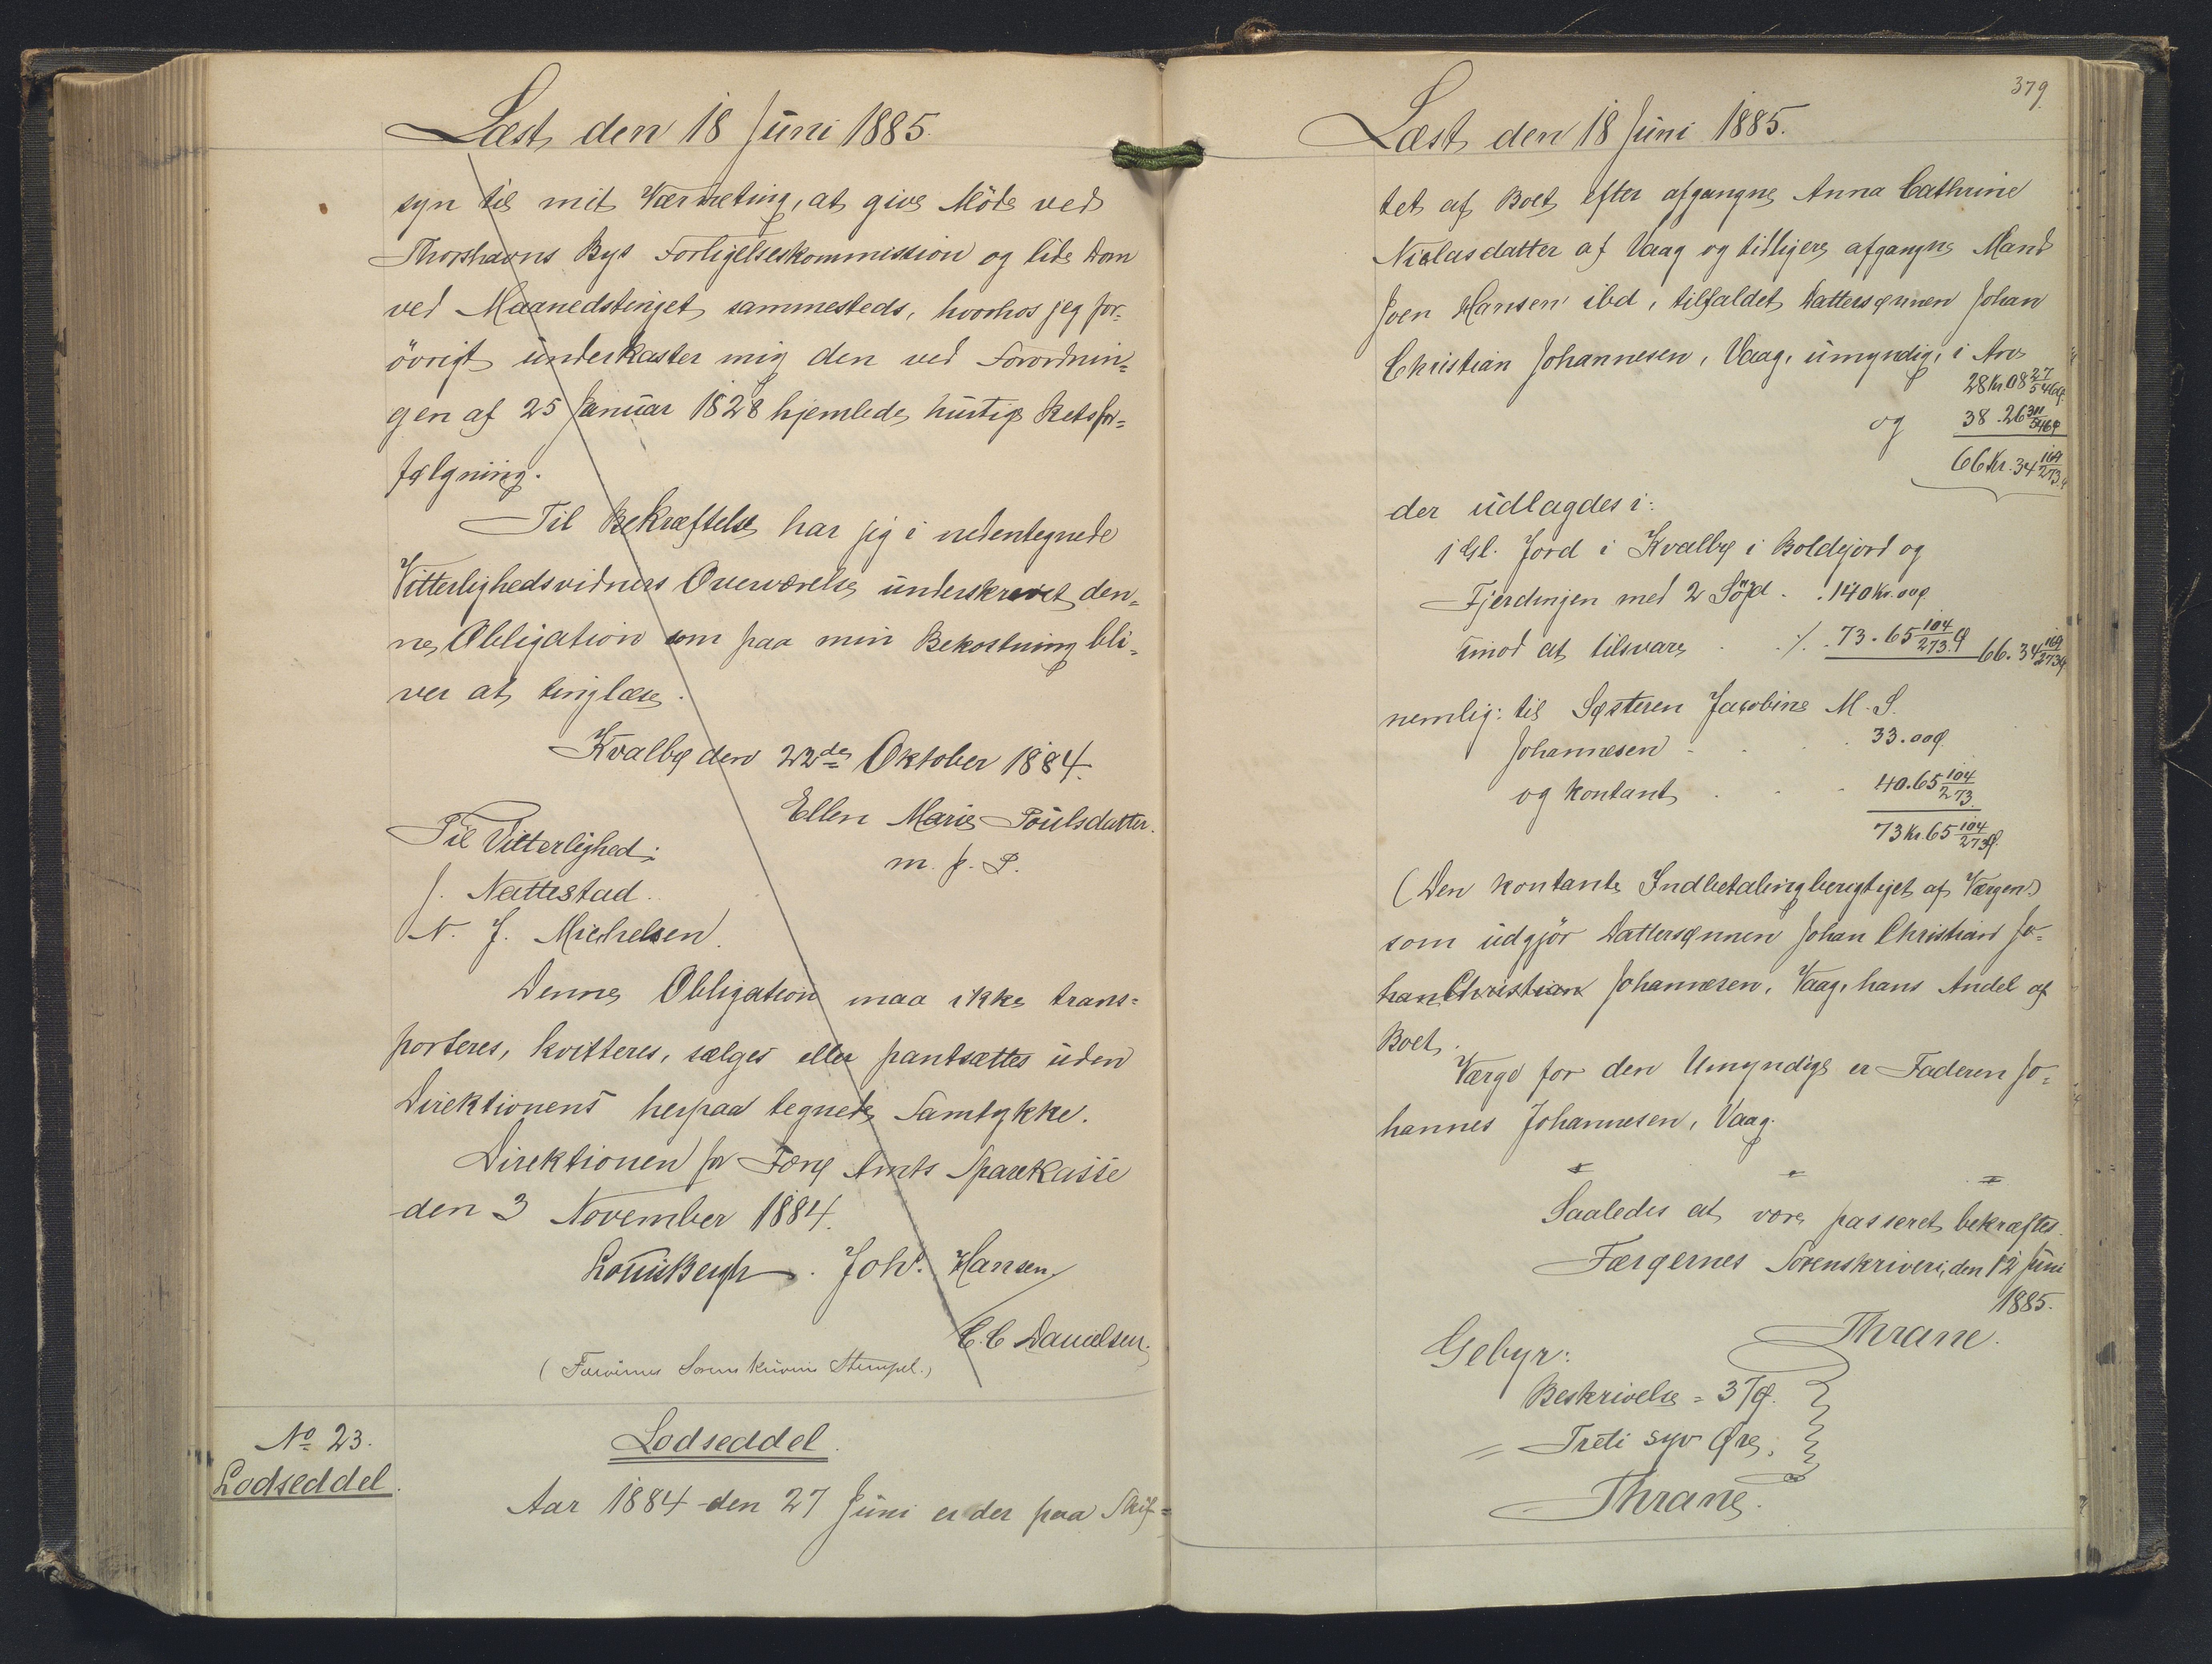 Læst den 18 Juni 1885.
syn til mit Værneting, at give Möde ved
Thorshavns Bys Forligelseskommission og lide Dom
ved Maanedstinget sammesteds, hvorhos jeg for-
övrigt underkaster mig den ved Forordnin=
gen af 25 Januar 1828 hjemlede hurtige Retsfor=
følgning.
Til Bekræftelse har jeg i nedentegnede
Vitterlighedsvidners Overværelse underskrevet den=
ne Obligation som paa min Bekostning bli=
ver at tinglæse.
Kvalbø den 22de Oktober 1884.
Ellen Marie Poulsdatter.
m. f. P.
Til Vitterlighed:
J. Nattestad.
N. J. Michelsen.
Denne Obligation maa ikke trans=
porteres, kvitteres, sælges eller pantsættes uden
Direktionens herpaa tegnede Samtykke.
Direktionen for Færø Amts Sparekasse
den 3 November 1884.
Louis Bergh. Joh. Hansen
C. C. Danielsen.
(Færöernes Sorenskriveri Stempel.)
No 23.
Lodseddel.
Lodseddel.
Aar 1884 den 27 Juni er der paa Skif=
379
Læst den 18 Juni 1885.
tet af Boet efter afgangne Anna Cathrine
Niclasdatter af Vaag og tidligere afgangne Mand
Joen Hansen ibd, tilfaldet Dattersønnen Johan
Christian Johannesen, Vaag, umyndig, i Arv
28 Kr. 08 27/546 Ø.
og 38. 26 311/546 Ø
66 Kr. 34 169/273 Ø
der udlagdes i:
1 Gl. Jord i Kvalbø i Boldejord og
Fjerdingen med 2 Söjd. . 140 Kr. 00 Ø
imod at tilsvare . ./. 73. 65 104/273 Ø 66. 34 169/273 Ø
nemlig: til Søsteren Jacobine M. S.
Johannesen . . 33. 00 Ø
og kontant . . . 40. 65 104/273
73 Kr. 65 104/273 Ø.
(Den kontante Indbetaling berigtiget af Værgen)
som udgjör Dattersønnen Johan Christian Jo=
han Christian Johannesen, Vaag, hans Andel af
Boet.
Værge for den Umyndige er Faderen Jo=
hannes Johannesen, Vaag.
Saaledes at være passeret bekræftes.
Færøernes Sorenskriveri, den 12 Juni
1885.
Thrane.
Gebyr:
Beskrivelse = 37 Ø.
= Treti syv Øre.
Thrane.